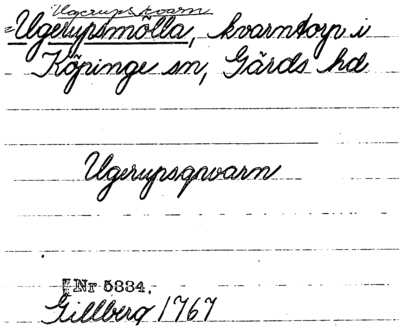 Ugerups kvarn
=Ugerupsmölla, kvarntorp i
Köpinge sn, Gärds hd
Ugerupsqvarn
Nr 5334.
Gillberg 1767